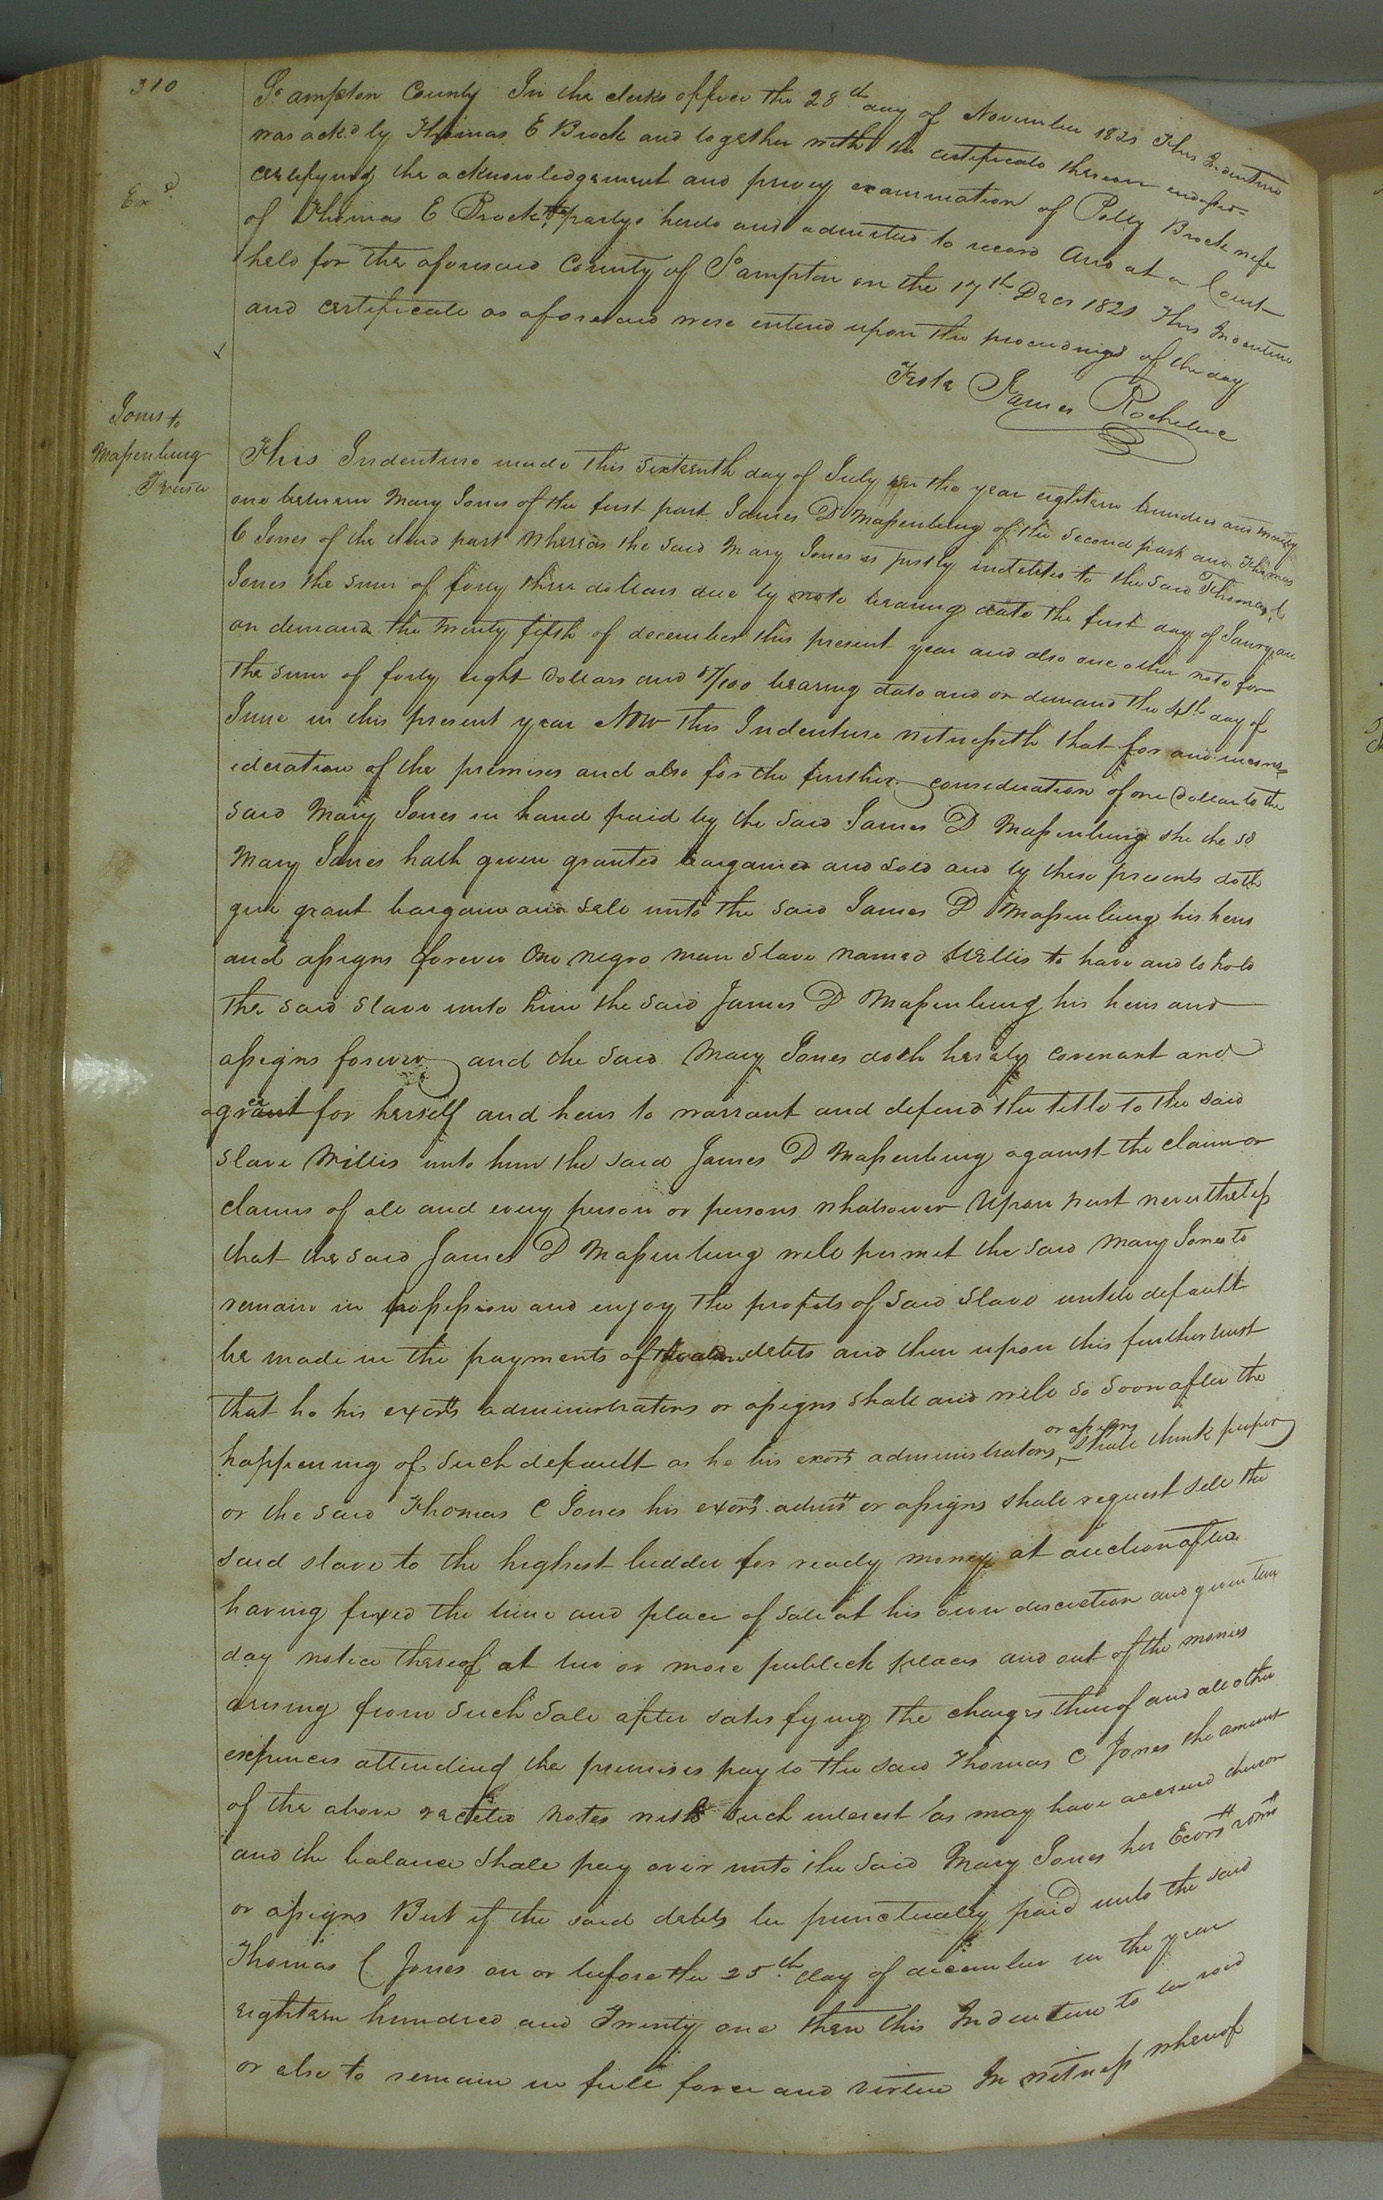 310
So ampton County In the clerks office the 28th day of November 1821 This Indenture
was ackd by Thomas E Brock and together with the certificate thereon endorsed
Exd
certifying the acknowledgement and privey examination of Polly Brock wife
of Thomas E Brock partys hereto and admitted to record And at a Court
held for the aforesaid County of So ampton on the 17th Decr 1821 This Indenture
and certificate as aforesaid were entered upon the proceedings of the day
Teste James Rochelle
Jones to
Massenburg
Trust
This Indenture made this sixteenth day of July in the year eighteen hundred and twenty
one between Mary Jones of the first part James D Massenburg of the second part and Thomas
C Jones of the third part Whereas the said Mary Jones is justly indebted to the said Thomas C
Jones the sum of forty three dollars due by note bearing date the first day of Janry
on demand the twenty fifth of december this present year and also one other note for
the sum of forty eight Dollars and 57/100 bearing date and on demand the 4th day of
June in this present year Now this Indenture witnesseth that for and in cons
ideration of the premises and also for the further consideration of one Dollar to the
said Mary Jones in hand paid by the said James D Massenburg she the sd
Mary Jones hath given granted bargained and sold and by these presents doth
give grant bargain and sell unto the said James D Massenburg his heirs
and assigns forever One negro man slave named Willis to have and to hold
the said slave unto him the said James D Massenburg his heirs and
assigns forever and the said Mary Jones doth hereby covenant and
agree for herself and heirs to warrant and defend the title to the said
slave Willis unto him the said James D Massenburg against the claim or
claims of all and every person or persons whatsoever Upon trust nevertheless
that the said James D Massenburg will permit the said Mary Jones to
remain in possession and enjoy the profits of said slave untill default
be made in the payments of debts and then upon this further trust
that he his exors administrators or assigns shall and will so soon after the
happening of such default as he his exors administrators or assigns shall think proper
or the said Thomas C Jones his exors admrs or assigns shall request sell the
said slave to the highest bidder for ready money at auction after
having fixed the time and place of sale at his own discretion and given ten
day notice thereof at two or more publick places and out of the monies
arising from such sale after satisfying the charges thereof and all other
expences attending the premises pay to the said Thomas C Jones the amount
of the above recited notes with such interest as may have accrued thereon
and the balance shall pay over unto the said Mary Jones her Exors
or assigns But if the said debts be punctually paid unto the said
Thomas C Jones on or before the 25th day of december in the year
eighteen hundred and Twenty one then this Indenture to be void
or else to remain in full force and virtue In witness whereof